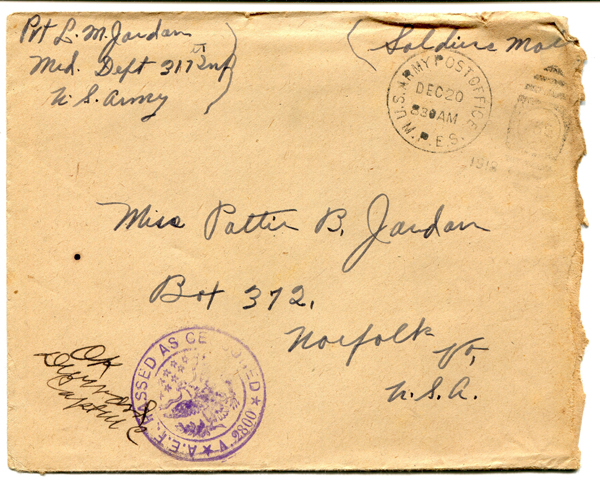 Pvt L. M. Jordan
Med. Dept 317th Inf
U. S. Army
Soldiers Mail
U.S. ARMY POST OFFICE
M.P.E.S.
DEC 20
830 AM
1918
Miss Pattie B. Jordan
Box 372,
Norfolk
Va,
U.S.A.
A.E.F. PASSED AS CENSORED
V. 2800
OK
Capt